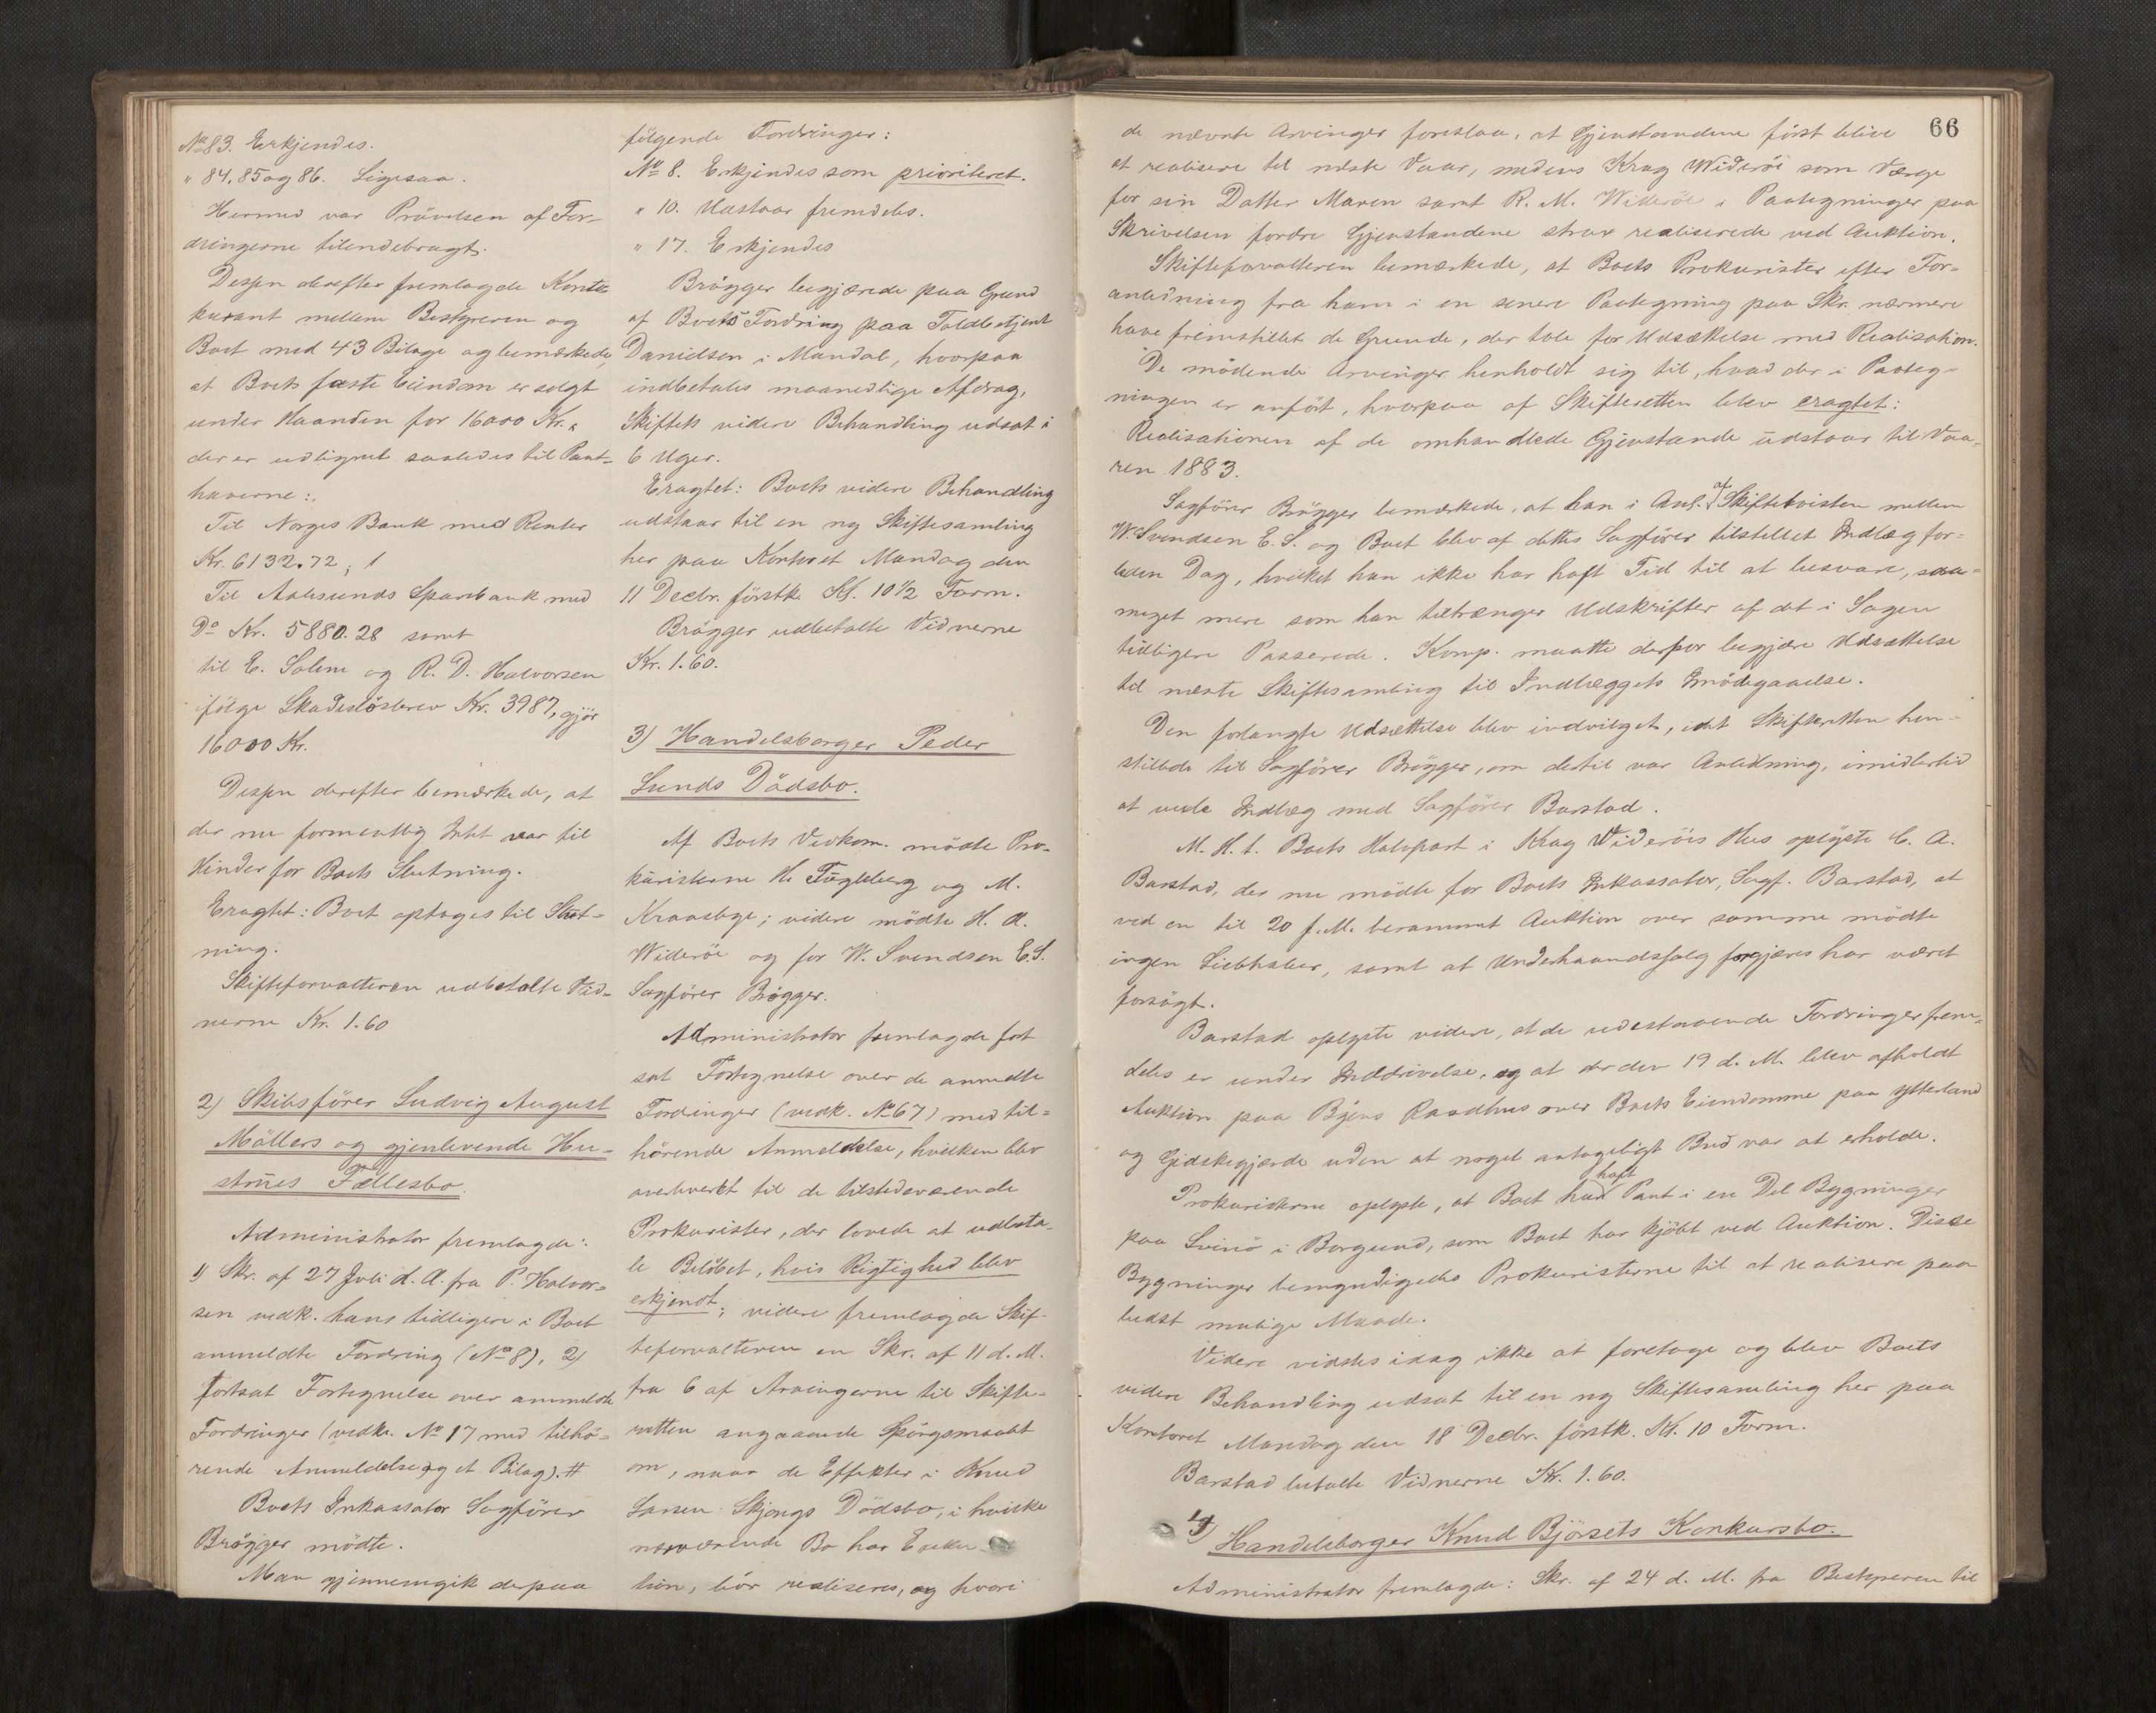 No 83. Erkjendes.
" 84, 85 og 86. Ligesaa.
Hermed var Prövelsen af For-
dringerne tilendebragt.
Despn derefter fremlagde Konto-
kurant mellem Bestyreren og
Boet med 43 Bilage og bemærkede,
at Boets faste Eiendom er solgt
under Haanden for 16000 Kr.,
der er udlignet saaledes til Pant-
haverne:
Til Norges Bank med Renter
Kr. 6132.72,
Til Aalesunds Sparebank med
Do Kr. 5880.28 samt
til E. Solem og R. D. Halvorsen
ifölge Skadeslösbrev Kr. 3987, gjör
16000 Kr.
Despn derefter bemærkede, at
der nu formentlig Intet var til
Hinder for Boets Slutning.
Eragtet: Boet optages til Slut-
ning.
Skifteforvalteren udbetalte Vid-
nerne Kr. 1.60
2) Skibsförer Ludvig August
Möllers og gjenlevende Hu-
strues Fællesbo.
Administrator fremlagde:
1) Skr. af 27 Juli d. A. fra P. Halvor-
sen vedk. hans tidligere i Boet
anmeldte Fordring (No 8), 2)
fortsat Fortegnelse over anmeldte
Fordringer (vedk. No 17 med tilhö-
rende Anmeldelse og et Bilag). #
Boets Inkassator Sagförer
Brögger mödte.
Man gjennemgik derpaa
fölgende Fordringer:
No 8. Erkjendes som prioriteret.
" 10. Udstaar fremdeles.
" 17. Erkjendes
Brögger begjærede paa Grund
af Boets Fordring paa Toldbetjent
Danielsen i Mandal, hvorpaa
indbetales maanedlige Afdrag,
Skiftets videre Behandling udsat i
6 Uger.
Eragtet: Boets videre Behandling
udstaar til en ny Skiftesamling
her paa Kontoret Mandag den
11 Decbr. förstk. Kl. 10 1/2 Form.
Brögger udbetalte Vidnerne
Kr. 1.60.
3) Handelsborger Peder
Lunds Dödsbo.
Af Boets Vedkom. mödte Pro-
kuristerne H. Fugleberg og M.
Kraasbye; videre mödte H. K.
Wideröe og for W. Svendsen E.S.
Sagförer Brögger.
Administrator fremlagde fort
sat Fortegnelse over de anmeldte
Fordringer (vedk. No 67) med til-
hörende Anmeldelse, hvilken blev
overleveret til de tilstedeværende
Prokurister, der lovede at udbeta-
le Belöbet, hvis Rigtighed blev
erkjendt; videre fremlagde Skif-
teforvalteren en Skr. af 11 d. M.
fra 6 af Arvingerne til Skifte-
retten angaaende Spörgsmaalet
om, naar de Effekter i Knud
Larsen Skjongs Dödsbo, i hvilke
nærværende Bo har Exeku-
tion, bör realiseres, og hvori
66
de nævnte Arvinger foreslaa, at Gjenstandene först blive
at realisere til næste Vaar, medens Krag Wideröe som Værge
for sin Datter Maren samt R. M. Wideröe i Paategninger paa
Skrivelsen fordre Gjenstandene strax realiserede ved Auktion.
Skifteforvalteren bemærkede, at Boets Prokurister efter For-
anledning fra ham i en senere Paategning paa Skr. nærmere
have fremstillet de Grunde, der tale for Udsættelse med Realisation.
De mödende Arvinger henholdt sig til, hvad der i Paateg-
ningen er anfört, hvorpaa af Skifteretten blev eragtet:
Realisationen af de omhandlede Gjenstande udstaar til Vaa-
ren 1883.
Sagförer Brögger bemærkede, at han i Anl. af Skiftetvisten mellem
W. Svendsen E.S. og Boet blev af dettes Sagförer tilstillet Indlæg for-
leden Dag, hvilket han ikke har haft Tid til at besvare, saa-
meget mere som han tiltrænger Udskrifter af det i Sagen
tidligere Passerede. Komp. maatte derfor begjære Udsættelse
til næste Skiftesamling til Indlæggets Imödegaaelse.
Den forlangte Udsættelse blev indvilget, idet Skifteretten hen-
stillede til Sagförer Brögger, om dertil var Anledning, imidlertid
at vexle Indlæg med Sagförer Barstad.
M. H. t. Boets Halvpart i Krag Wideröes Hus oplyste C. A.
Barstad, der nu mödte for Boets Inkassator, Sagf. Barstad, at
ved en til 20 f. M. berammet Auktion over samme mödte
ingen Liebhaber, samt at Underhaandssalg forgjæves har været
forsögt.
Barstad oplyste videre, at de udestaaende Fordringer frem-
deles er under Inddrivelse, og at der den 19 d. M. blev afholdt
Auktion paa Byens Raadhus over Boets Eiendomme paa Ytterland
og Gjidskegjerde uden at noget antageligt Bud var at erholde.
Prokuristerne oplyste, at Boet har haft Pant i en Del Bygninger
paa Svinö i Borgund, som Boet har kjöbt ved Auktion. Disse
Bygninger bemyndigedes Prokuristerne til at realisere paa
bedst mulige Maade.
Videre vidstes idag ikke at foretage og blev Boets
videre Behandling udsat til en ny Skiftesamling her paa
Kontoret Mandag den 18 Decbr. förstk. Kl. 10 Form.
Barstad betalte Vidnerne Kr. 1.60.
4) Handelsborger Knud Björsets Konkursbo.
Administrator fremlagde: Skr. af 24 d. M. fra Bestyreren til